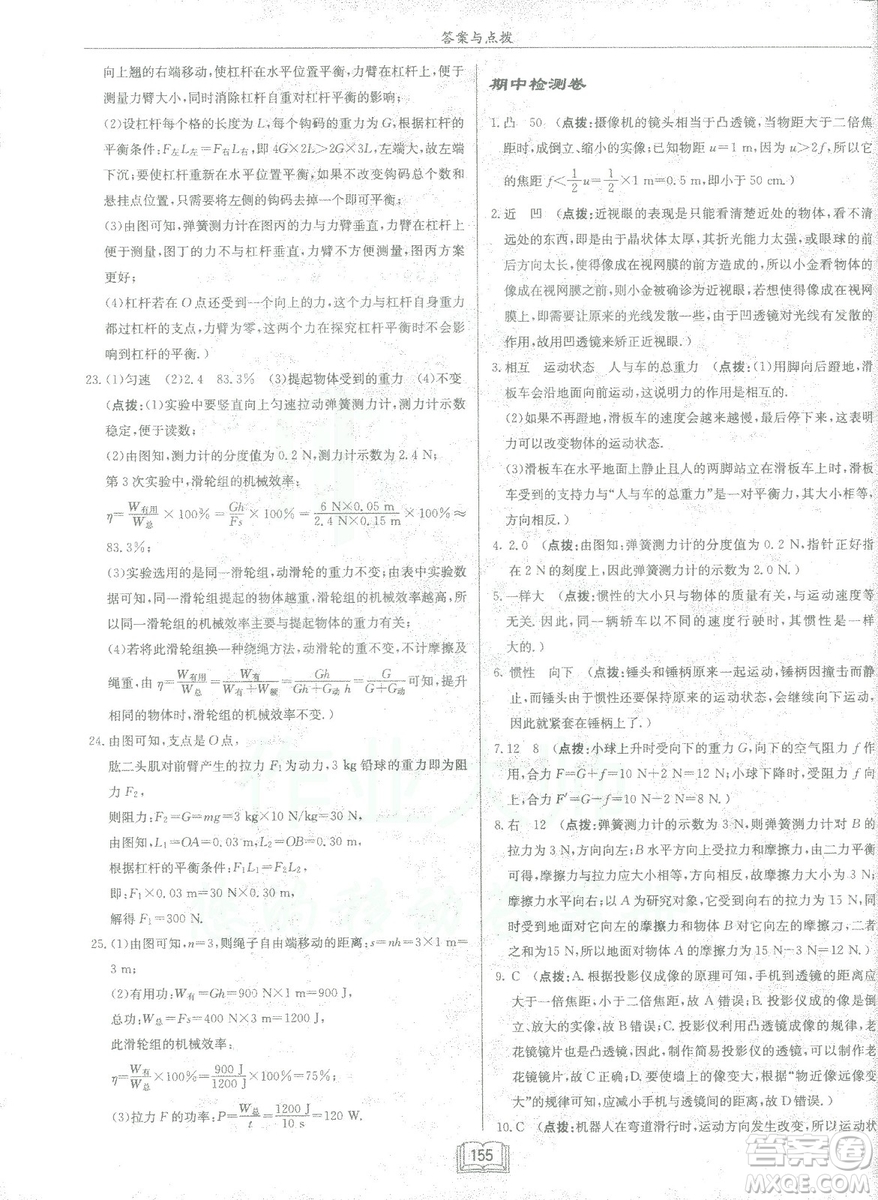 答案与点拨
向上翘的右端移动,使杠杆在水平位置平衡,力臂在杠杆上,便于
测量力臂大小,同时消除杠杆自重对杠杆平衡的影响;
(2)设杠杆每个格的长度为L,每个钩码的重力为G,根据杠杆的
平衡条件:F左L左=F右L右,即4G×2L>2G×3L,左端大,故左端
下沉;要使杠杆重新在水平位置平衡,如果不改变钩码总个数和
悬挂点位置,只需要将左侧的钩码去掉一个即可;
(3)由图可知,弹簧测力计在图丙的力与力臂垂直,力臂在杠杆上
便于测量,图丁的力不与杠杆垂直,力臂测量麻烦,图丙方案
更好;
(4)杠杆若在O点还受到一个向上的力,这个力与杠杆自身重力
都过杠杆的支点,力臂为零,这两个力在探究杠杆平衡时不会
影响到杠杆的平衡。)
23.(1)匀速 (2)2.4 83.3% (3)提起物体受到的重力 (4)不变
(点拨:(1)实验中要竖直向上匀速拉动弹簧测力计,测力计示数
稳定,便于读数;
(2)由图知,测力计的分度值为0.2 N,测力计示数为2.4 N,
第3次实验中,滑轮组的机械效率:
η=W有用/W总×100%=Gh/Fs×100%=6 N×0.05 m/2.4 N×0.15 m×100%≈
83.3%;
(3)实验选用的是同一滑轮组,动滑轮的重力不变;由表中实验数
据可知,同一滑轮组提起的物体越重,滑轮组的机械效率越高,所
以同一滑轮组的机械效率主要与提起物体的重力有关;
(4)若将此滑轮组换一种绕绳方法,动滑轮的重不变,不计摩擦及
绳重,由η=W有用/W总=W有/W有+W额=Gh/Gh+G动h=G/G+G动可知,提升
相同的物体时,滑轮组的机械效率不变。)
24.由图可知,支点是O点,
肱二头肌对前臂产生的拉力F1为动力,3 kg铅球的重力即为阻
力F2,
则阻力:F2=G=mg=3 kg×10 N/kg=30 N,
由图知,L1=OA=0.03 m,L2=OB=0.30 m,
根据杠杆的平衡条件:F1L1=F2L2,
即:F1×0.03 m=30 N×0.30 m,
解得F1=300 N.
25.(1)由图可知,n=3,则绳子自由端移动的距离:s=nh=3×1 m=
3 m;
(2)有用功:W有=Gh=900 N×1 m=900 J,
总功:W总=Fs=400 N×3 m=1200 J,
此滑轮组的机械效率:
η=W有/W总×100%=900 J/1200 J×100%=75%;
(3)拉力F的功率:P=W总/t=1200 J/10 s=120 W.
期中检测卷
1.凸 50 (点拨:摄像机的镜头相当于凸透镜,当物距大于二倍焦
距时,成倒立、缩小的实像;已知物距u=1 m,且u>2f,所以它
的焦距f<1/2u=1/2×1 m=0.5 m,即小于50 cm.)
2.近 凹 (点拨:近视眼的表现是只能看清楚近处的物体,看不清
远处的东西,由于晶状体太厚,其折光能力太强,或眼球的前
后方向太长,使得像成在视网膜的前方造成的,所以小金看物体的
像成在视网膜前,因此小金被确诊为近视眼;为了使像成在视网
膜上,需要让原来的光线发散一些,由于凹透镜对光线有发散的
作用,因此佩戴凹透镜来矫正近视眼。)
3.相互 运动状态 人与车的总重力 (点拨:(1)用脚向后蹬地,滑
板车会沿地面向前运动,说明力的作用是相互的.
(2)如果不再蹬地,滑板车的速度会越来越慢,最后停下来,这表
明力可以改变物体的运动状态.
(3)滑板车在水平地面上静止且人的两脚站立在滑板车上,滑板
车受到的支持力与“人与车的总重力”是一对平衡力,其大小相等,
方向相反.)
4.2.0 (点拨:由图知:弹簧测力计的分度值为0.2 N,指针正好指
在2 N的刻度上,因此弹簧测力计的示数为2.0 N.)
5.一样大 (点拨:惯性的大小只与物体的质量有关,与运动速度等
无关.因此,同一辆轿车以不同的速度行驶时,其惯性是一样
大的.)
6. 惯性 向下 (点拨:锤头和锤柄原来一起运动,锤柄因撞击而
停止,而锤头由于惯性还要保持原来的运动状态,会继续向下运动,
因此就紧套在锤柄上了.)
7.12 8 (点拨:小球上升时受向下的重力G,向下的空气阻力f作
用,合力F=G+f=10 N+2 N=12 N;小球下降时,受阻力f向
上,合力F′=G-f=10 N-2 N=8 N.)
8.右 12 (点拨:弹簧测力计的示数为3 N,测力计对B的
拉力为3 N,方向向左;B水平方向上受拉力和摩擦力,由二力平衡
可得,B受到的摩擦力与拉力大小相等,方向相反,故摩擦力大小为3 N,
摩擦力水平向右;以A为研究对象,它受到向右的拉力15 N,
同时受到地面对它的摩擦力和物体B对它向左的摩擦力,三力之和
为15 N,所以,地面对物体A的摩擦力大小为15 N-3 N=12 N.)
9. C (点拨:A.根据投影仪成像的原理可知,手机到透镜的距离应大
于一倍焦距,小于二倍焦距,故A错误;B.投影仪成的像是倒
立、放大的实像,故B错误;C.投影仪利用凸透镜成像的规律,老
花镜镜片也是凸透镜,因此,制作简易投影仪的透镜,可以用老花
镜,故C正确;D.要使墙上的像变大,根据“物近像远像变大”
可知,应减小手机与透镜间的距离,故D错误.)
10.C (点拨:机器人在弯道滑行时,运动方向发生改变,运动状
155
答案卷
MXQE.COM